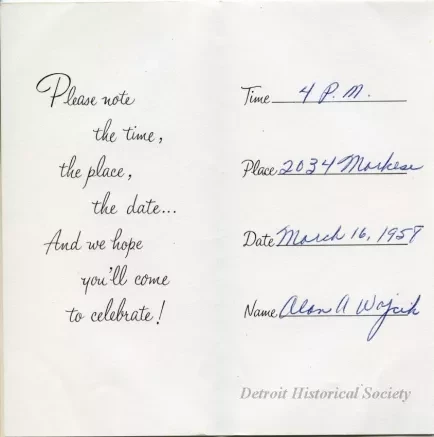 Please note
the time,
the place,
the date...
And we hope
you'll come
to celebrate!
Time 4 P.M.
Place 2034 Markese
Date March 16, 1957
Name Alan A Wojcik
Detroit Historical Society